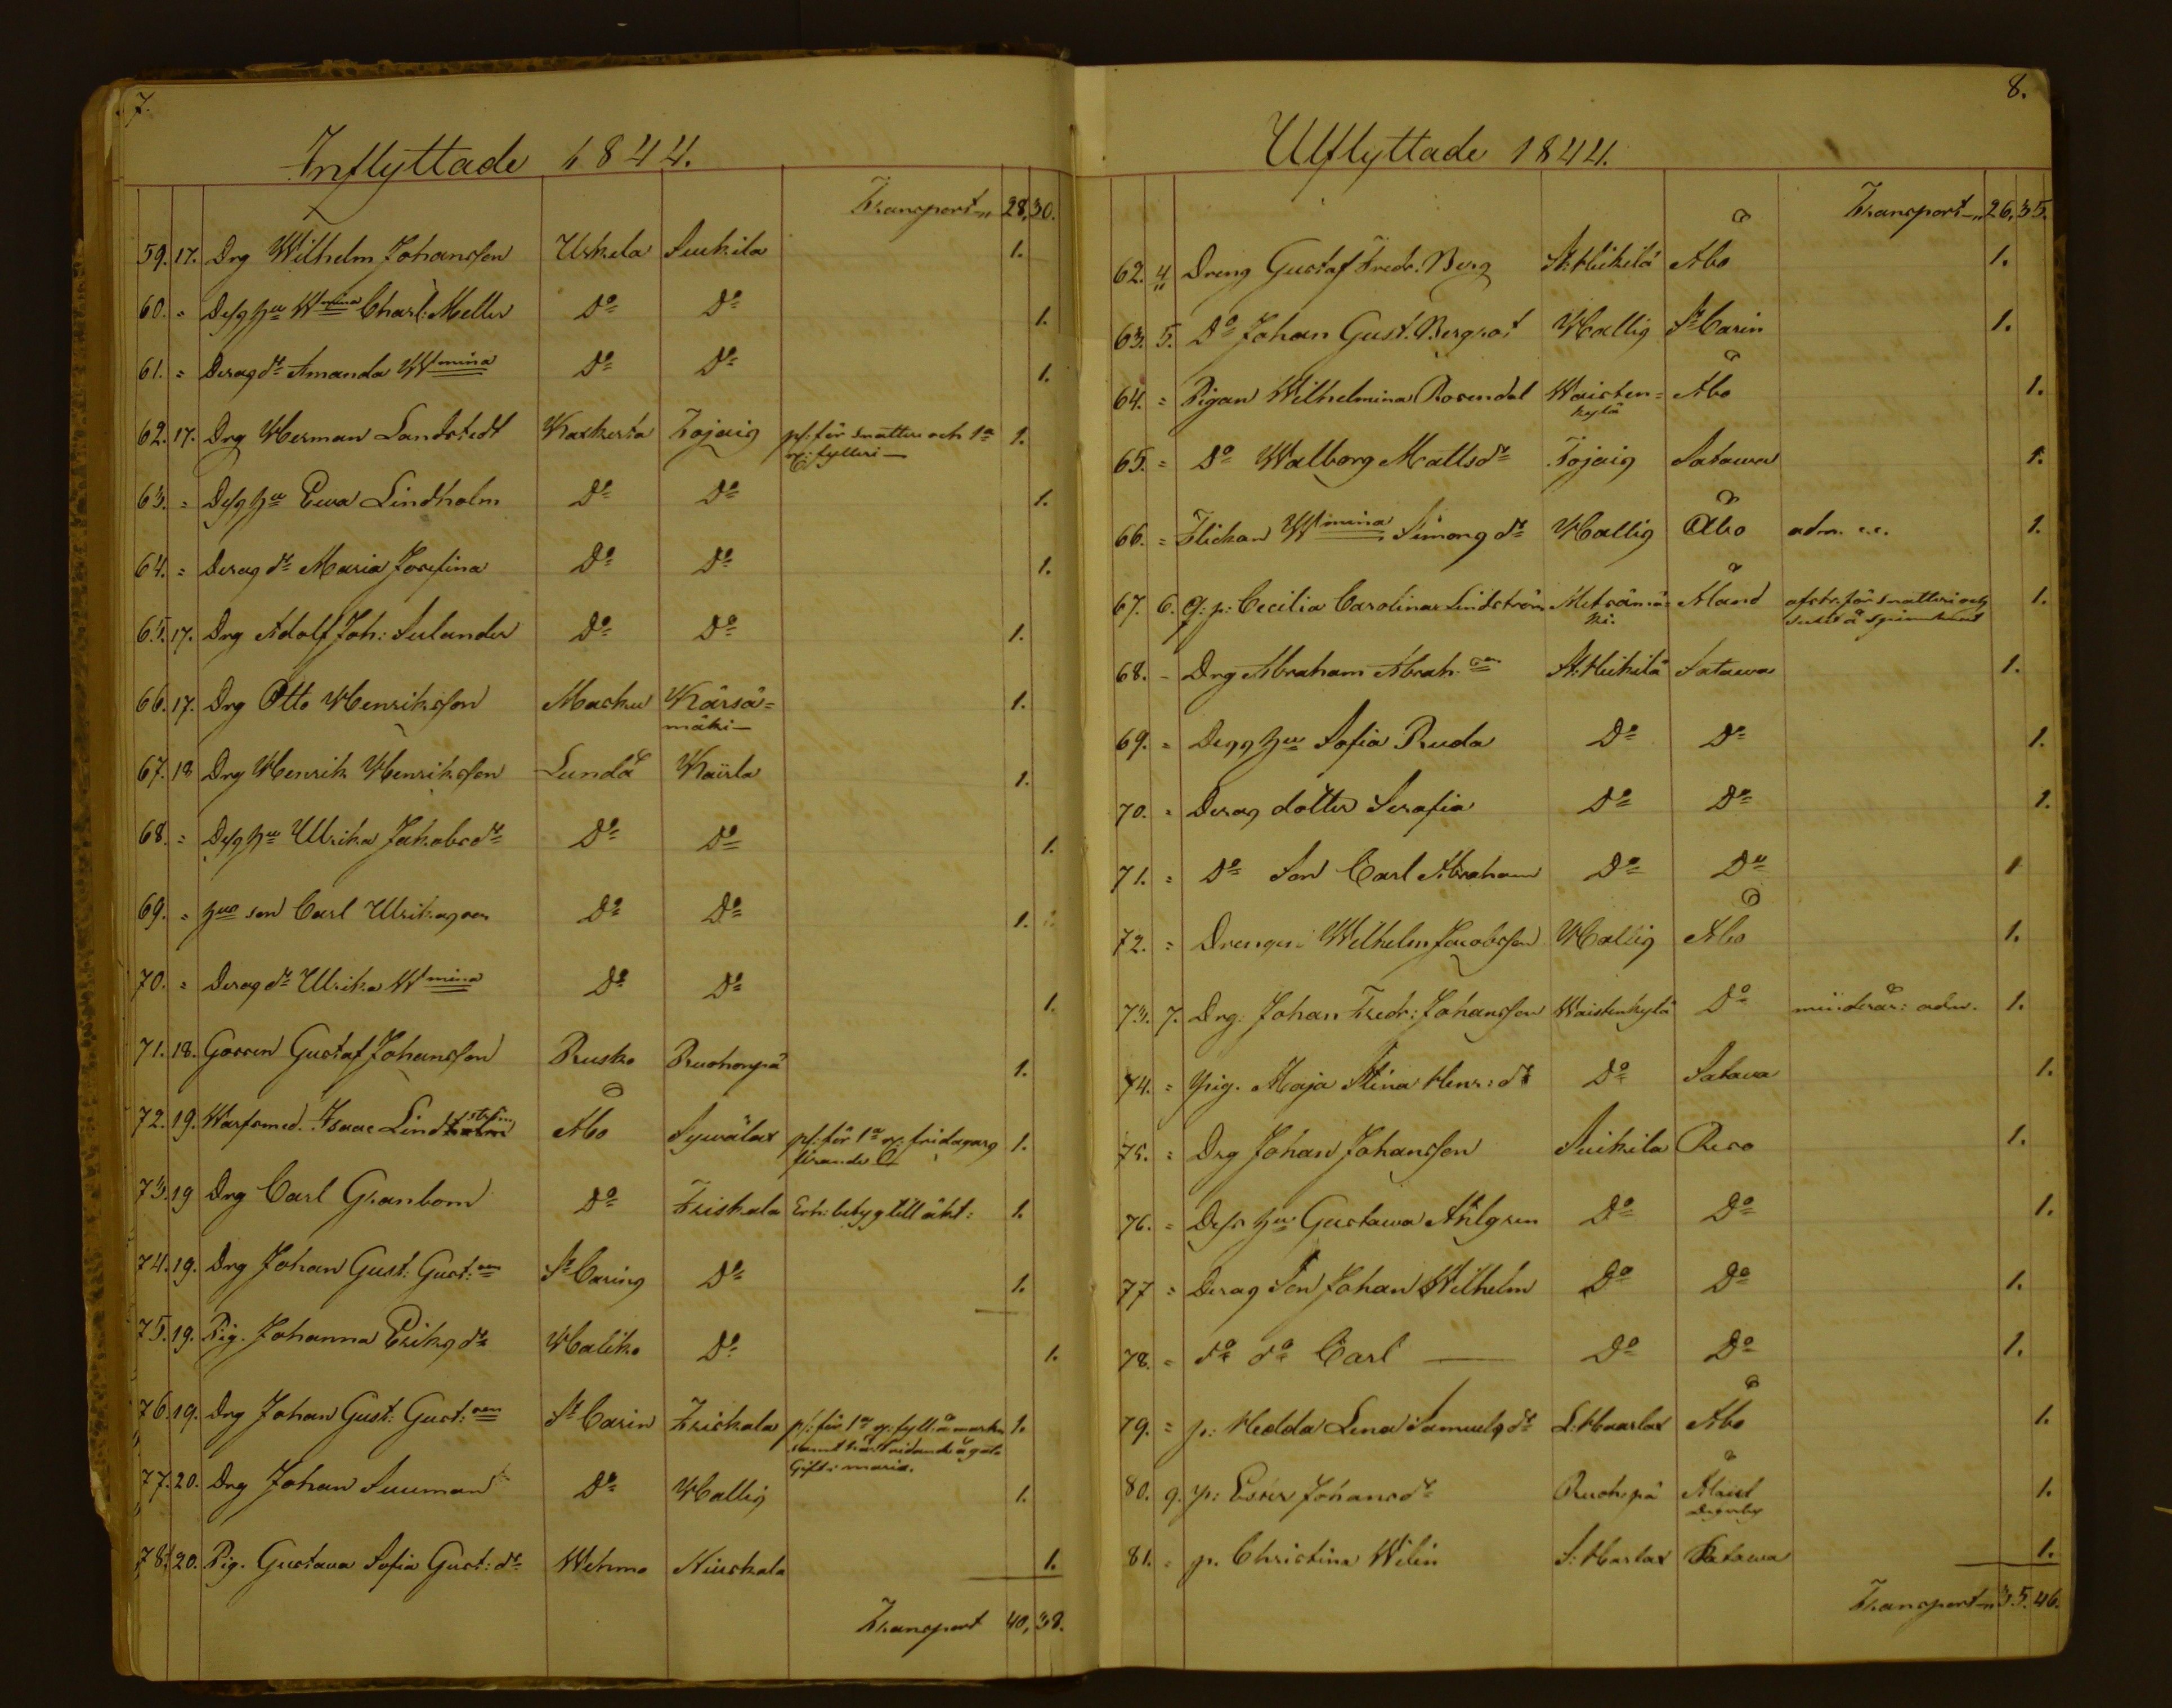 7.
Inflyttade 1844.
Transport 28, 30.
59. 17. Drg Wilhelm Johansson Uskela Suikila 1.
60. = Dess hu Wmina Charl: Meller Do Do 1.
61. = Deras dr Amanda Wmina Do Do 1.
62. 17. Drg Herman Landstedt Kaskerta Tojais pl: för snatteri och 1a
rg: fylleri 1.
63. = Dess hu Ewa Lindholm Do Do 1.
64. = Deras dr Maria Josefina Do Do 1.
65. 17. Drg Adolf Joh: Sulander Do Do 1.
66. 17. Drg Otto Henriksson Masku Kärsä=
mäki 1.
67. 18 Drg Henrik Henriksson Lundå Kairla 1.
68. = Dess hu Ulrika Jakobsdr Do Do 1.
69. = hus son Carl Ulrikason Do Do 1.
70. = Deras dr Ulrika Wmina Do Do 1.
71. 18. Gossen Gustaf Johansson Rusko Ruohonpä 1.
72. 19. Warfsmed. Isaac Lindström Åbo Syvälax pl: för 1a rg: fridagars
firande 1.
73. 19 Drg Carl Granbom Do Friskala Erh: betyg till äkt: 1.
74. 19. Drg Johan Gust: Gust:son St Carins Do 1.
75. 19. Pig. Johanna Eriksdr Haliko Do 1.
76. 19. Drg Johan Gust: Gust:son St Carin Friskala pl: för 1a rg: fyll: å markn
samt ridande å gata
Gift: maria. 1.
77. 20. Drg Johan Suuman Do Hallis 1.
78. 20. Pig. Gustava Sofia Gust:dr Wehmo Niuskala 1.
Transport 40, 38.
8.
Utflyttade 1844.
Transport 26, 35.
62. 4 Dreng Gustaf Fredr. Berg St: Heikilä Åbo 1.
63. 5. Do Johan Gust. Bergrot Hallis St Carin 1.
64. = Pigan Wilhelmina Rosendal Waisten=
kylä Åbo 1.
65. = Do Walborg Mattsdr Tojais Satawa 1.
66. = Flickan Wmina Simonsdr Hallis Åbo adm. 1.
67. 6. q: p: Cecilia Carolina Lindström Metsämä=
ki. Åland afstr. för snatteri och
å spinnhuset 1.
68. - Drg Abraham Abrah.son St: Heikilä Satawa 1.
69. = Dess hu Sofia Ruda Do Do 1.
70. = Deras dotter Serafia Do Do 1.
71. = Do Son Carl Abraham Do Do 1
72. = Drengen Wilhelm Jacobsson Hallis Åbo 1.
73. 7. Drg: Johan Fredr: Johansson Waistenkylä Do minderår: adm. 1.
74. = pig. Maja Stina Henr:dr Do Satava 1.
75. = Drg Johan Johansson Suikila Reso 1.
76. = Dess hu Gustawa Ahlgren Do Do 1.
77 = Deras Son Johan Wilhelm Do Do 1.
78. = do do Carl Do Do 1.
79. = p: Hedda Lena Samuelsdr L: Haarlax Åbo 1.
80. 9. p: Ester Johansdr Ruoh:pä Åland 1.
81. = p. Christina Wilin S: Harlax Satawa 1.
Transport 35. 46.